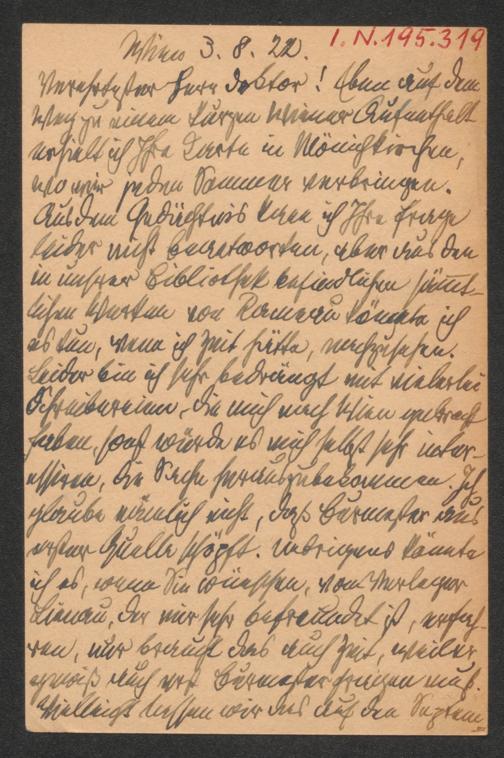 Wien 3.8.22. I.N.195.319
Verehrtester Herr Doktor! Eben auf dem
Weg zu einem kurzen Wiener Aufenthalt
erhielt ich Ihre Karte in Mönichkirchen,
wo wir jeden Sommer verbringen.
Aus dem Gedächtnis kann ich Ihre Frage
leider nicht beantworten, aber aus den
in unsrer Bibliothek befindlichen sämt-
lichen Werken von Rameau könnte ich
es tun, wenn ich Zeit hätte, nachzusehen.
Leider bin ich sehr bedrängt mit vielerlei
Schreibereien, die mich nach Wien gebracht
haben, sonst würde es mich selbst sehr inter-
essiren, die Sache herauszubekommen. Ich
glaube nämlich nicht, daß Burmester aus
erster Quelle schöpft. Uebrigens könnte
ich es, wenn Sie wünschen, vom Verleger
Lienau, der mir sehr befreundet ist, erfah-
ren, nur braucht das auch Zeit, weil er
gewiß auch erst Burmester fragen muß.
Vielleicht lassen wir das auf den Septem